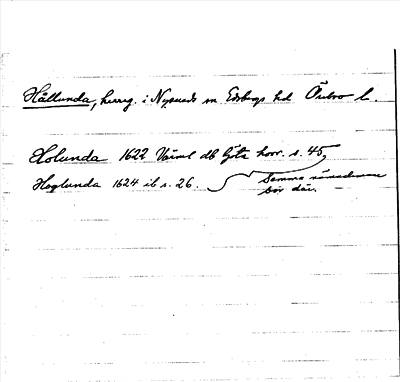 Hållunda, herrg. i Nysunds sn Edsbergs hd Örebro l.
Holunda 1622 Värml db Göta horr. s. 45,
Hoglunda 1624 ib s. 26. Samma
bor där.